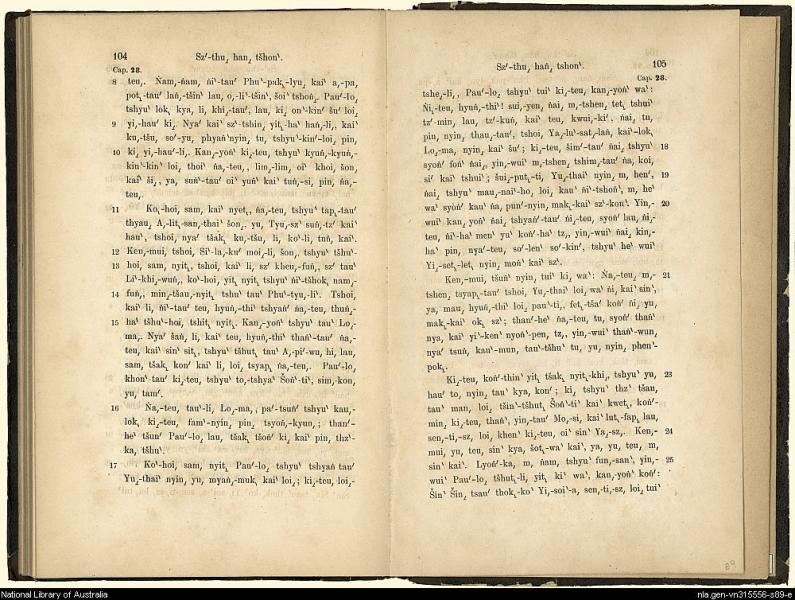 104
Sz'-thu, han, tšhonˋ.
Cap. 28.
8 teu,. Ṅam,-ṅam, ṅiˋ-tau' Phuˋ-pak,-lyu, kaiˋ a,-pa,
pot,-tau' laṅ,-tšinˋ lau, o,-liˋ-tšinˋ, šoiˋ tshoṅ,. Pau'-lo,
tshyuˋ lok, kya, li, khi,-tau', lau, ki, onˋ-kin' šu' loi,
9 yi,-hau' ki,. Nya' kaiˋ szˋ-tshin, yit,-haˋ haṅ,-li,, kaiˋ
ku,-tšu, so'-yu, phyaṅˋnyin, tu, tshyuˋ-kin'-loi, pin,
10 ki, yi,-hau'-li,. Kan,-yoṅˋ ki,-teu, tshyuˋ kyuṅ,-kyuṅ,-
kinˋ-kinˋ loi, thoiˋ ṅa,-teu,, lim,-lim, oiˋ khoi, šon,
kaiˋ ši,, ya, suṅˋ-tau' oiˋ yuṅˋ kaiˋ tuṅ,-si, pin, ṅa,-
teu,.
11 Ko,-hoi, sam, kaiˋ nyet,, ṅa,-teu, tshyuˋ tap,-tau'
thyau, A,-lit,-san,-thaiˋ šon,, yu, Tyu,-szˋ suṅ,-tz' kaiˋ
hauˋ, tshoi, nya' tšak, ku,-tšu, li, koˋ-li, tuṅ, kaiˋ.
12 Ken,-mui, tshoi, Siˋ-la,-ku' moi,-li, šon, tshyuˋ tšhuˋ-
13 hoi, sam, nyit,, tshoi, kaiˋ li, sz' kheu,-fuṅ,, sz' tauˋ
Liˋ-khi,-wuṅ,, koˋ-hoi, yit, nyit, tshyuˋ ṅiˋ-tšhok, nam,-
14 fuṅ,, min,-tšau,-nyit, tshuˋ tauˋ Phuˋ-tyu,-liˋ. Tshoi,
kaiˋ li, ṅiˋ-tau' teu, hyuṅ,-thiˋ tshyaṅˋ ṅa,-teu, thuṅ,-
15 haˋ tšhu'-hoi, tshit, nyit,. Kan,-yoṅˋ tshyuˋ tauˋ Lo,-
ma,. Nya' šaṅ, li, kaiˋ teu, hyuṅ,-thiˋ thaṅˋ-tau' ṅa,-
teu, kaiˋ sinˋ sit,, tshyuˋ tšhut, tauˋ A,-pi'-wu, hi, lau,
sam, tšak, kon' kaiˋ li, loi, tsyap, ṅa,-teu,. Pau'-lo,
khonˋtau' ki,-teu, tshyuˋ to,-tshyaˋ Šoṅˋ-tiˋ, sim,-kon,
yu, tam'.
16 Ṅa,-teu, tauˋ-li, Lo,-ma,, paˋ-tsuṅ' tshyuˋ kau,-
lok, ki,-teu, famˋ-nyin, pin, tsyoṅ,-kyun,; than'-
heˋ tšunˋ Pau'-lo, lau, tšak, tšoṅˋ ki, kaiˋ pin, thzˋ-
ka, tšhuˋ.
17 Koˋ-hoi, sam, nyit, Pau'-lo, tshyuˋ tshyaṅ tau'
Yu,-thaiˋ nyin, yu, myaṅ,-muk, kaiˋ loi,; ki,-teu, loi,-
Sz'-thu, haṅ, tshonˋ.
105
Cap. 28.
tshe,-li,, Pau'-lo, tshyuˋ tuiˋ ki,-teu, kan,-yoṅˋ waˋ:
Ṅi,-teu, hyuṅ,-thiˋ! sui,-yen, ṅai, m,-tshen, tet, tshuiˋ
tz'-min, lau, tz'-kuṅ, kaiˋ teu, kwui,-ki', ṅai, tu,
pin, nyin, thau,-tau', tshoi, Ya,-luˋ-sat,-laṅ, kaiˋ-lok,
Lo,-ma, nyin, kaiˋ šu'; ki,-teu, šim'-tau' ṅai, tshyuˋ 18
syoṅ' foṅˋ ṅai,, yin,-wuiˋ m,-tshen, tshim,-tau' ṅa, koi,
si' kaiˋ tshuiˋ; šui,-put,-ti, Yu,-thaiˋ nyin, m, hen', 19
ṅai, tshyuˋ mau,-nai'-ho, loi, kauˋ ṅiˋ-tshoṅˋ, m, heˋ
waˋ syoṅ' kauˋ ṅa, pun'-nyin, mak,-kaiˋ szˋ-konˋ. Yin,- 20
wuiˋ kan, yoṅˋ ṅai, tshyaṅ'-tau' ṅi,-teu, syoṅ' lau, ṅi,-
teu, ṅiˋ-haˋ men' yuˋ koṅ'-haˋ tz,, yin,-wuiˋ ṅai, kin,-
haˋ pin, nya'-teu, so'-lenˋ so'-kin', tshyuˋ heˋ wuiˋ
Yi,-set,-let, nyin, moṅˋ kaiˋ szˋ.
Ken,-mui, tšuṅˋ nyin, tuiˋ ki, waˋ: Ṅa,-teu, m,- 21
tshen, tsyap,-tau' tshoi, Yu,-thaiˋ loi, waˋ ṅi, kaiˋ sinˋ,
ya, mau, hyuṅ,-thiˋ loi, pauˋ-ti,, fet,-tša' koṅˋ ṅi, yu,
mak,-kaiˋ ok, szˋ; than'-heˋ ṅa,-teu, tu, syoṅ' thaṅˋ
nya, kaiˋ yiˋ-kenˋ nyoṅˋ-pen, tz,, yin,-wuiˋ thaṅˋ-wun,
nya' tsuṅ, kanˋ-mun, tauˋ-tšhuˋ tu, yu, nyin, phen'-
pok,.
Ki,-teu, koṅ'-thinˋ yit, tšak, nyit,-khi,, tshyuˋ yu, 23
hau' to, nyin, tauˋ kya, konˋ; ki, tshyuˋ thzˋ tšau,
tauˋ man, loi, tšinˋ-tšhut, Šoṅˋ-tiˋ kaiˋ kwet,, koṅ'-
min, ki,-teu, thaṅˋ, yin,-tau' Mo,-si, kaiˋ lut,-fap, lau,
sen,-ti,-sz, loi, khenˋ ki,-teu, oiˋ sinˋ Ya,-sz,. Ken,- 24
mui, yu, teu, sinˋ kya, šot,-waˋ kaiˋ, ya, yu, teu, m,
sinˋ kaiˋ. Lyoṅ'-ka, m, ṅam, tshyuˋ fun,-sanˋ, yin,- 25
wuiˋ Pau'-lo, tšhut,-li, yit, kiˋ waˋ, kan,-yoṅˋ koṅ':
Šinˋ Šin, tsau' thok,-koˋ Yi,-soiˋ-a, sen,-ti,-sz, loi, tuiˋ
89
National Library of Australia
nla.gen-vn315556-s89-e